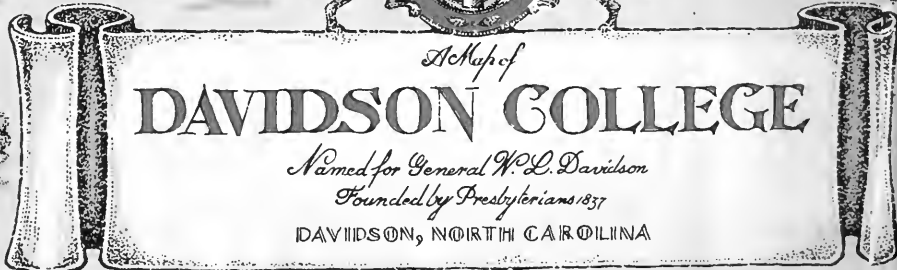 A Map of
DAVIDSON COLLEGE
Named for General W. L. Davidson
Founded by Presbyterians 1837
DAVIDSON, NORTH CAROLINA